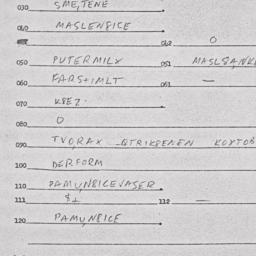 030 SME,TENE
040 MASLENBICE
042 O
050 PUTERMILX 051 MASLBA,NK
060 FARS+IMLT 061 —
070 KBEZ.
080 O
090 TVO,RAX QTRIKBENEN KOXTOB
100 DERFORM
110 PAMU,NBICEVASER
111 $⊥ 112 —
120 PAMU,NBICE